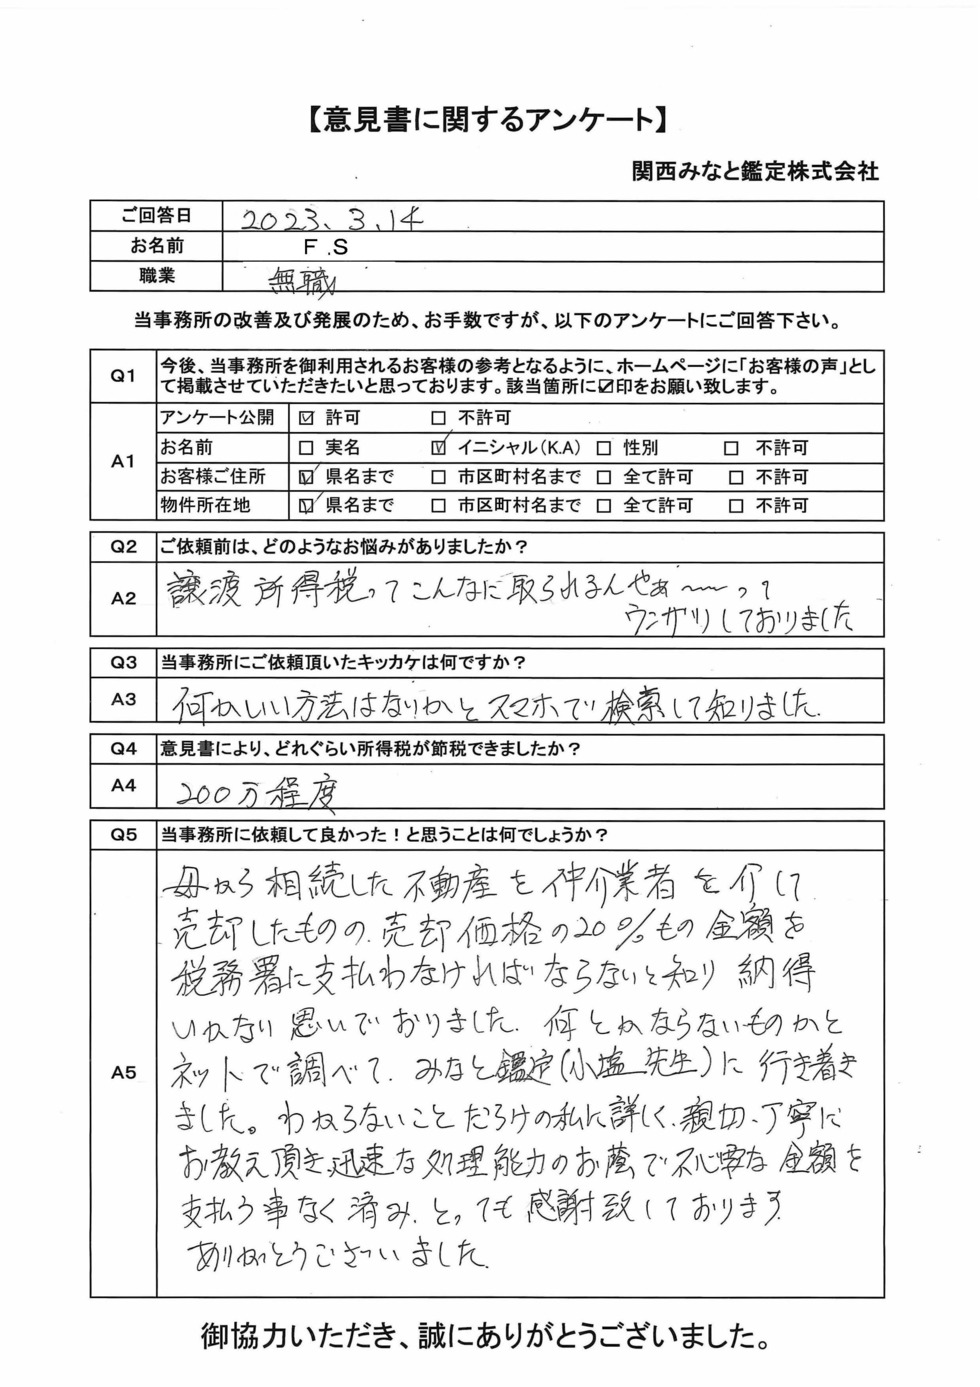 【意見書に関するアンケート】
関西みなと鑑定株式会社
ご回答日 2023、3、14
お名前 F.S
職業 無職
当事務所の改善及び発展のため、お手数ですが、以下のアンケートにご回答下さい。
Q1 今後、当事務所を御利用されるお客様の参考となるように、ホームページに「お客様の声」とし
て掲載させていただきたいと思っております。該当箇所に☑印をお願い致します。
A1
アンケート公開 ☑ 許可 □ 不許可
お名前 □ 実名 ☑ イニシャル(K.A) □ 性別 □ 不許可
お客様ご住所 ☑ 県名まで □ 市区町村名まで □ 全て許可 □ 不許可
物件所在地 ☑ 県名まで □ 市区町村名まで □ 全て許可 □ 不許可
Q2 ご依頼前は、どのようなお悩みがありましたか？
A2 譲渡所得税ってこんなに取られるんやぁ〜〜って
ウンザリしておりました
Q3 当事務所にご依頼頂いたキッカケは何ですか？
A3 何かいい方法はないかとスマホで検索して知りました.
Q4 意見書により、どれぐらい所得税が節税できましたか？
A4 200万程度
Q5 当事務所に依頼して良かった！と思うことは何でしょうか？
A5
母から相続した不動産を仲介業者を介して
売却したものの、売却価格の20%もの金額を
税務署に支払わなければならないと知り納得
いかない思いでおりました. 何とかならないものかと
ネットで調べて、みなと鑑定(小塩先生)に行き着き
ました。わからないことだらけの私に詳しく、親切、丁寧に
お教え頂き迅速な処理能力のお蔭で不必要な金額を
支払う事なく済み、とっても感謝致しております
ありがとうございました.
御協力いただき、誠にありがとうございました。